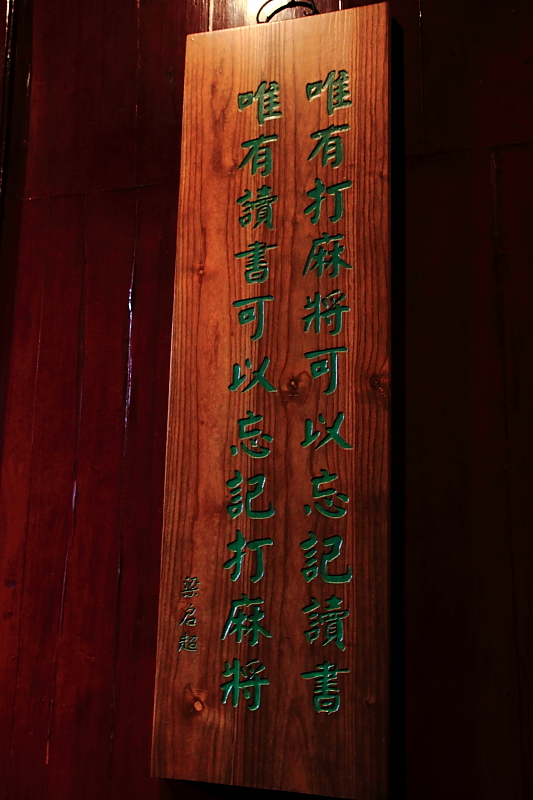 唯有打麻將可以忘記讀書
唯有讀書可以忘記打麻將
梁啟超